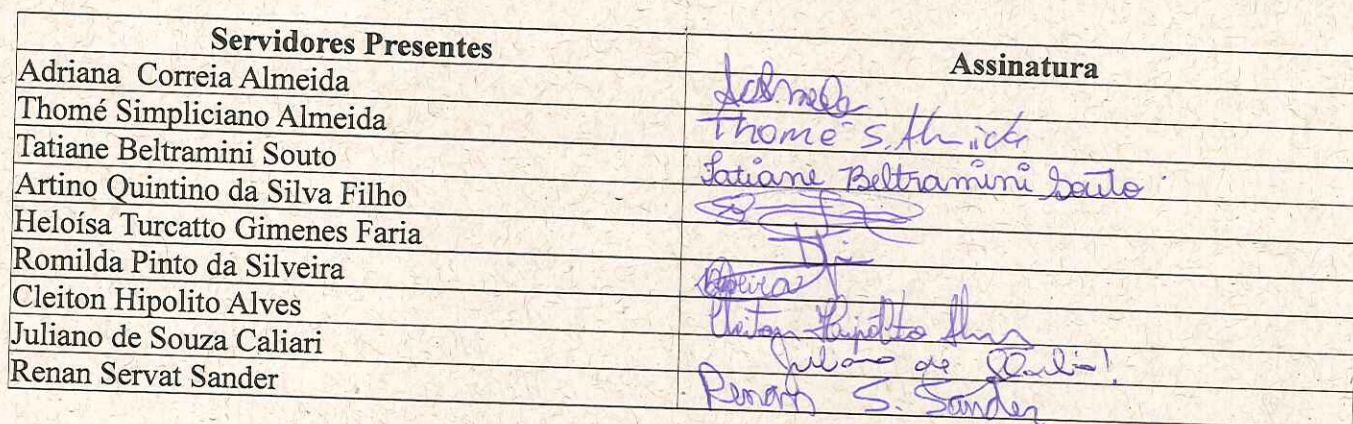 Servidores Presentes Assinatura
Adriana Correia Almeida
Thomé Simpliciano Almeida Thomé S. Almeida
Tatiane Beltramini Souto Tatiane Beltramini Souto
Artino Quintino da Silva Filho
Heloísa Turcatto Gimenes Faria
Romilda Pinto da Silveira
Cleiton Hipolito Alves Cleiton Hipolito Alves
Juliano de Souza Caliari Juliano de
Renan Servat Sander Renan S. Sander